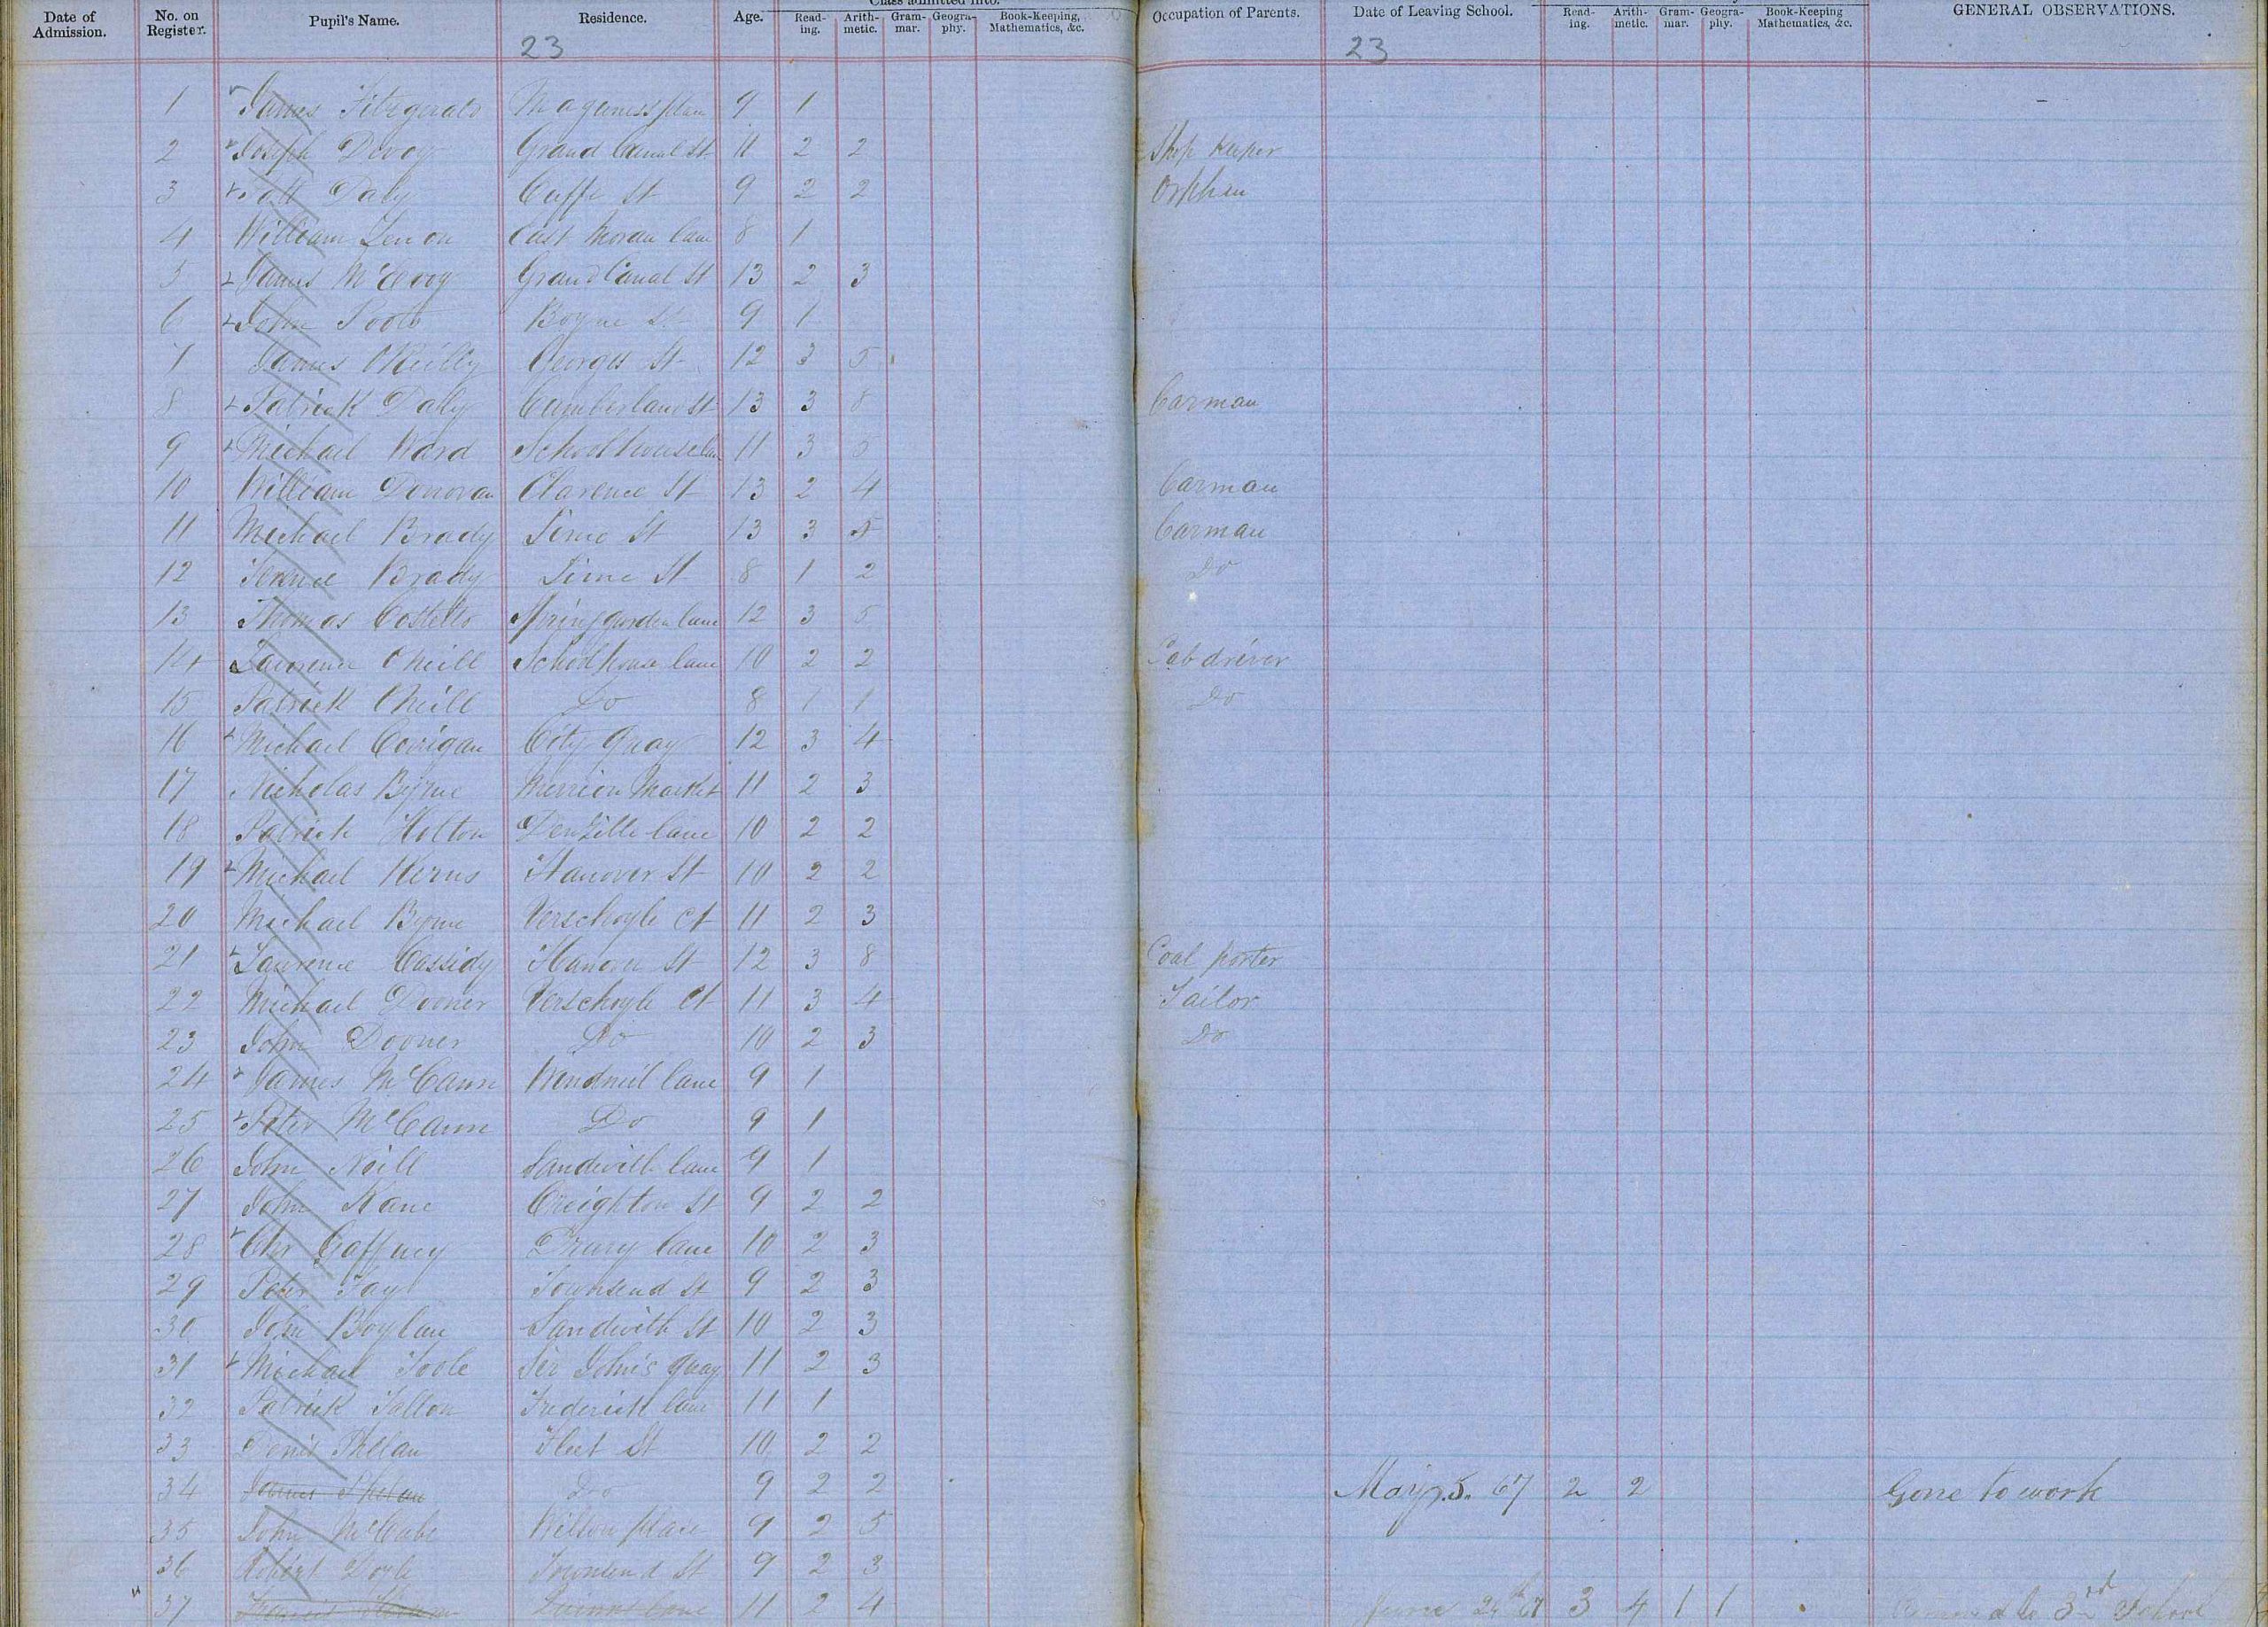 Class admitted into.
Date of Admission. No. on Register. Pupil's Name. Residence. Age. Read-ing. Arith-metic. Gram-mar. Geogra-phy. Book-Keeping, Mathematics, &c. Occupation of Parents. Date of Leaving School. Read-ing. Arith-metic. Gram-mar. Geogra-phy. Book-Keeping Mathematics, &c. GENERAL OBSERVATIONS.
23 23
1 James Fitzgerald Magenness place 9 1
2 Joseph Devoy Grand Canal St 11 2 2 Shop keeper
3 Patt Daly Cuffe St 9 2 2 Orphan
4 William Lennon East Moran lane 8 1
5 James McEvoy Grand Canal St 13 2 3
6 John Toole Boyne St 9 1
7 James OReilly Georges St 12 3 5
8 Patrick Daly Cumberland St 13 3 8 Carman
9 Michael Ward Schoolhouse lane 11 3 5
10 William Donovan Clarence St 13 2 4 Carman
11 Michael Brady Lime St 13 3 5 Carman
12 Terence Brady Lime St 8 1 2 Do
13 Thomas Costello Spring garden lane 12 3 5
14 Lawrence ONeill Schoolhouse lane 10 2 2 Cab driver
15 Patrick ONeill Do 8 1 1 Do
16 Michael Corrigan City Quay 12 3 4
17 Nicholas Byrne Merrion Market 11 2 3
18 Patrick Holton Denzille lane 10 2 2
19 Michael Kerns Hanover St 10 2 2
20 Michael Byrne Verschoyle Ct 11 2 3
21 Laurence Cassidy Hanover St 12 3 8 Coal porter
22 Michael Dooner Verschoyle Ct 11 3 4 Tailor
23 John Dooner Do 10 2 3 Do
24 James McCann Windmill lane 9 1
25 Peter McCann Do 9 1
26 John Neill Sandwith lane 9 1
27 John Kane Creighton St 9 2 2
28 Chr Gaffney Drury lane 10 2 3
29 Peter Fay Townsend St 9 2 3
30 John Boylan Sandwith St 10 2 3
31 Michael Toole Sir John's Quay 11 2 3
32 Patrick Fallon Frederick lane 11 1
33 Denis Phelan Fleet St 10 2 2
34 James Phelan Do 9 2 2 May 5. 67 2 2 Gone to work
35 John McCabe Wilton place 9 2 5
36 Robert Doyle Townsend St 9 2 3
37 Francis lane 11 2 4 June 24th 67 3 4 1 1 Removed to 3rd School